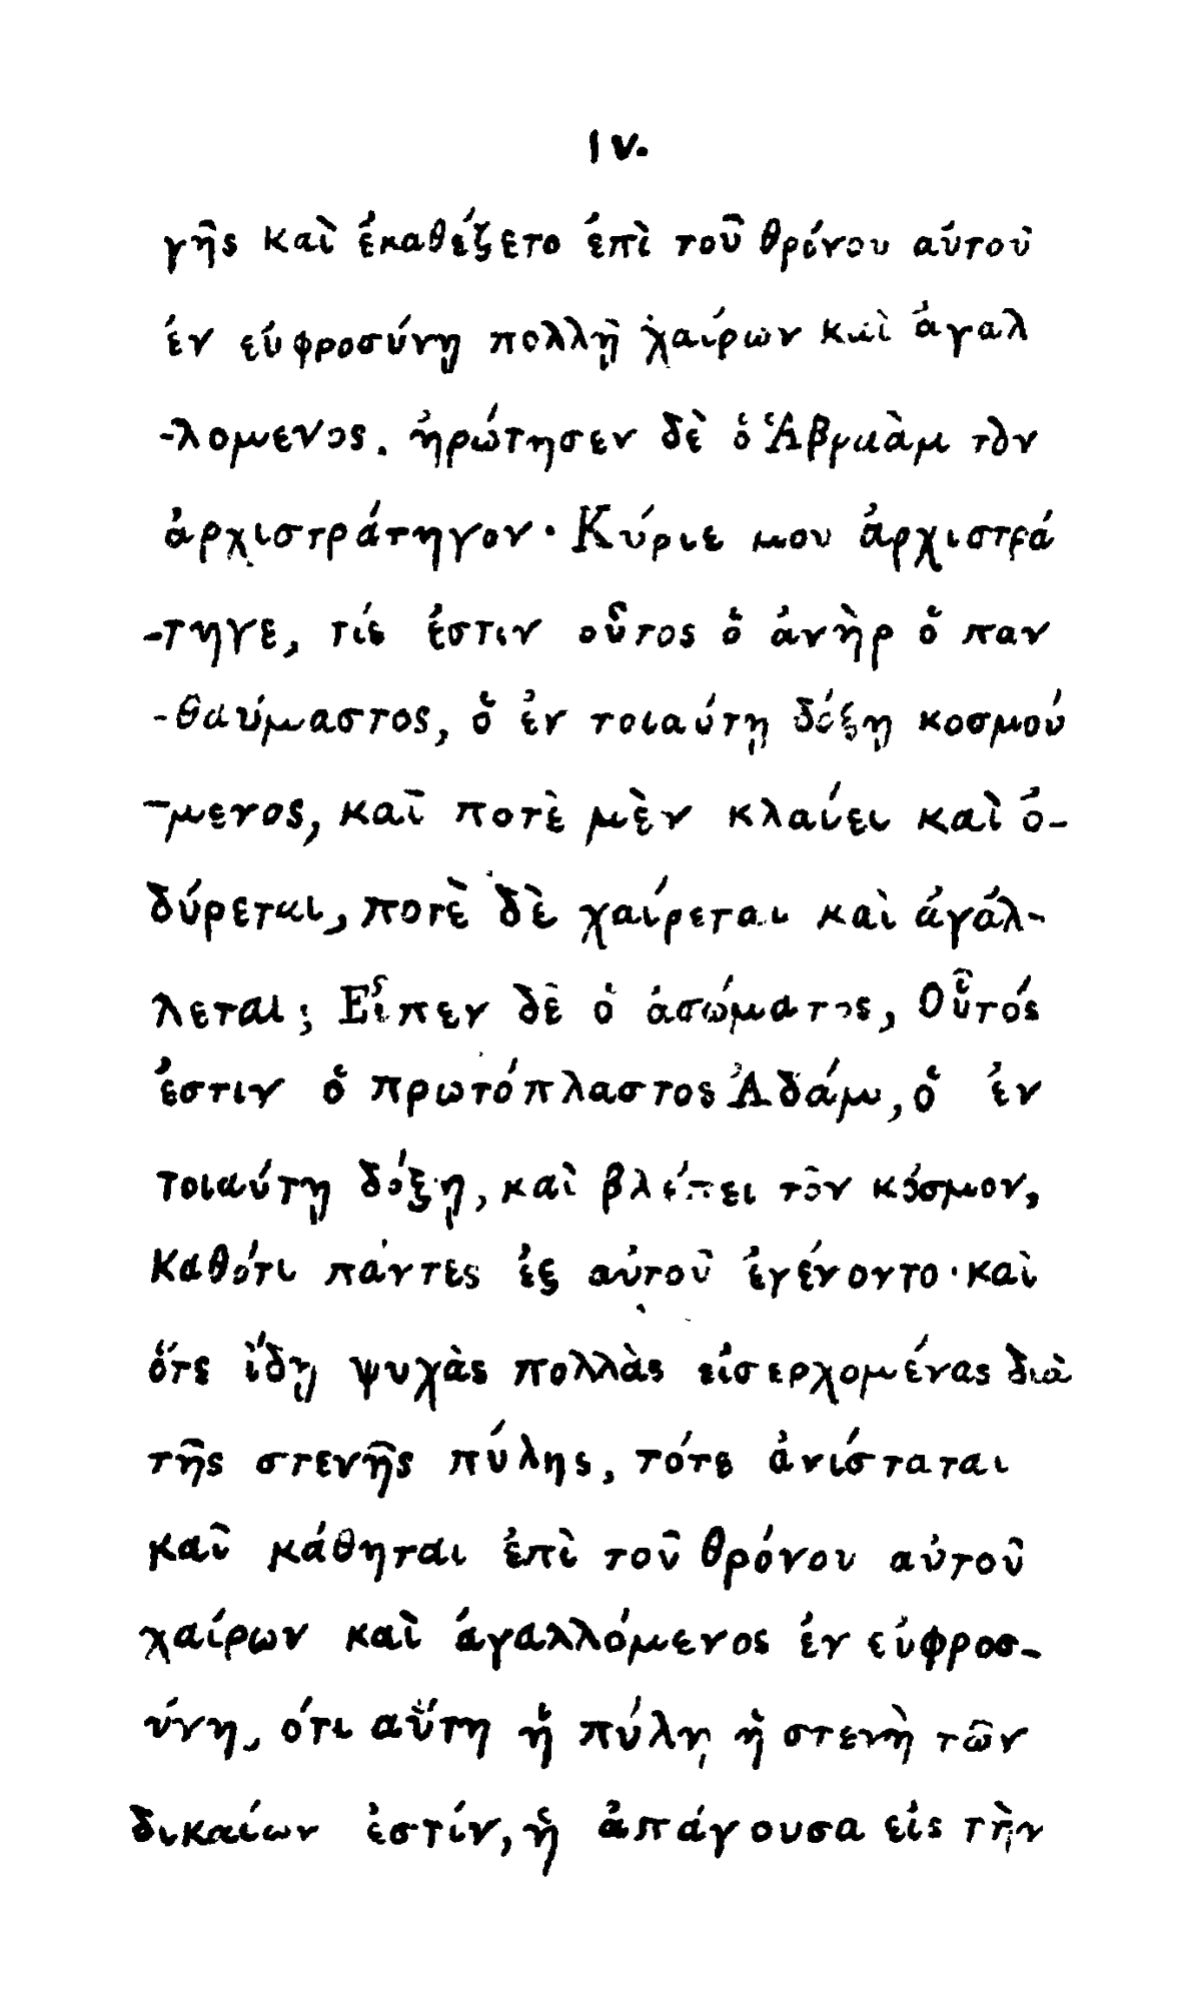 IV.
γῆς καὶ ἐκαθέζετο ἐπὶ τοῦ θρόνου αὐτοῦ
ἐν εὐφροσύνῃ πολλῇ χαίρων καὶ ἀγαλ
-λομενος. ἠρώτησεν δὲ ὁ Ἀβραὰμ τὸν
ἀρχιστράτηγον· Κύριε μου ἀρχιστρά
-τηγε, τίς ἐστιν οὗτος ὁ ἀνὴρ ὁ παν
-θαύμαστος, ὁ ἐν τοιαύτῃ δόξῃ κοσμού
-μενος, καὶ ποτὲ μὲν κλαίει καὶ ὀ-
δύρεται, ποτὲ δὲ χαίρεται καὶ ἀγάλ-
λεται; Εἶπεν δὲ ὁ ἀσώματος, Οὗτός
ἐστιν ὁ πρωτόπλαστος Ἀδάμ, ὁ ἐν
τοιαύτῃ δόξῃ, καὶ βλέπει τὸν κόσμον,
καθότι πάντες ἐξ αὐτοῦ ἐγένοντο· καὶ
ὅτε ἴδῃ ψυχὰς πολλὰς εἰσερχομένας διὰ
τῆς στενῆς πύλης, τότε ἀνίσταται
καὶ κάθηται ἐπὶ τοῦ θρόνου αὐτοῦ
χαίρων καὶ ἀγαλλόμενος ἐν εὐφροσ-
ύνῃ, ότι αὕτη ἡ πύλη ἡ στενὴ τῶν
δικαίων ἐστίν, ἡ ἀπάγουσα εἰς τὴν